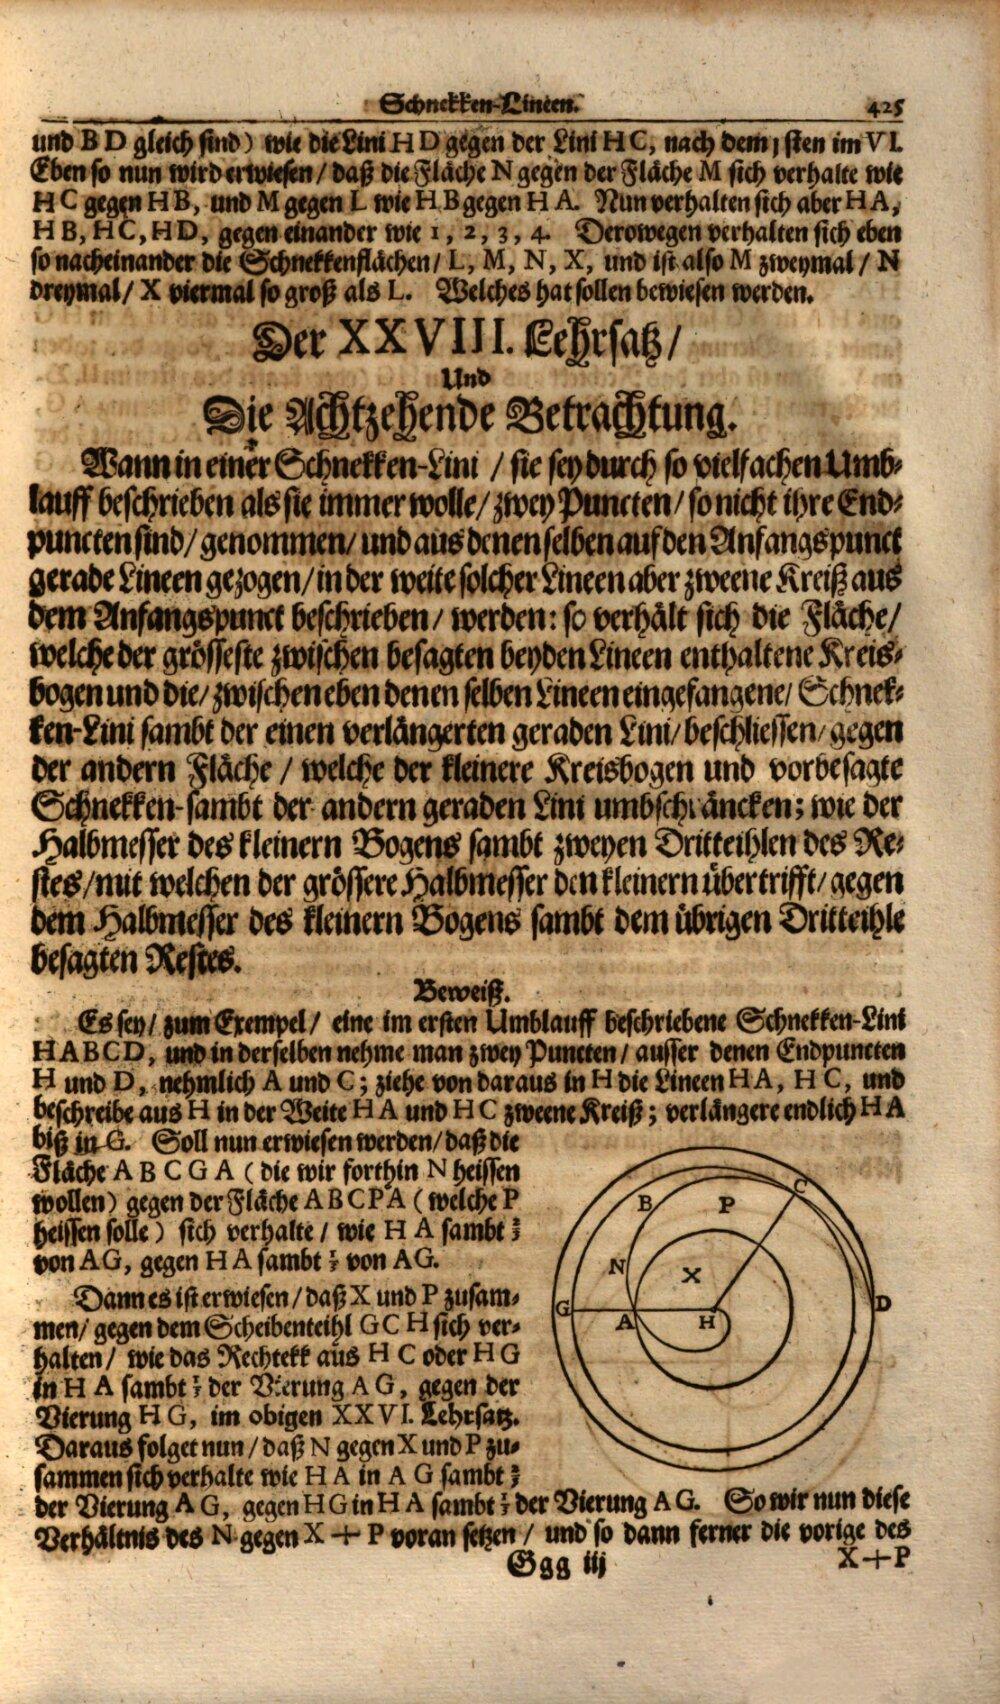 Schnekken-Lineen. 425
und B D gleich sind) wie die Lini H D gegen der Lini H C, nach dem 1sten im VI.
Eben so nun wird erwiesen / daß die Fläche N gegen der Fläche M sich verhalte wie
H C gegen H B, und M gegen L wie H B gegen H A. Nun verhalten sich aber H A,
H B, H C, H D, gegen einander wie 1, 2, 3, 4. Derowegen verhalten sich eben
so nacheinander die Schnekkenflächen / L, M, N, X, und ist also M zweymal / N
dreymal / X viermal so groß als L. Welches hat sollen bewiesen werden.
Der XXVIII. Lehrsatz /
Und
Die Achtzehende Betrachtung.
Wann in einer Schnekken-Lini / sie sey durch so vielfachen Umb-
lauff beschrieben als sie immer wolle / zwey Puncten / so nicht ihre End-
puncten sind / genommen / und aus denenselben auf den Anfangspunct
gerade Lineen gezogen / in der weite solcher Lineen aber zweene Kreiß aus
dem Anfangspunct beschrieben / werden: so verhält sich die Fläche /
welche der grösseste zwischen besagten beyden Lineen enthaltene Kreis-
bogen und die / zwischen eben denenselben Lineen eingefangene / Schnek-
ken-Lini sambt der einen verlängerten geraden Lini / beschliessen / gegen
der andern Fläche / welche der kleinere Kreisbogen und vorbesagte
Schnekken- sambt der andern geraden Lini umbschräncken; wie der
Halbmesser des kleinern Bogens sambt zweyen Dritteihlen des Re-
stes / mit welchen der grössere Halbmesser den kleinern übertrifft / gegen
dem Halbmesser des kleinern Bogens sambt dem übrigen Dritteihle
besagten Restes.
Beweiß.
Es sey / zum Exempel / eine im ersten Umblauff beschriebene Schnekken-Lini
HABCD, und in derselben nehme man zwey Puncten / ausser denen Endpuncten
H und D, nehmlich A und C; ziehe von daraus in H die Lineen H A, H C, und
beschreibe aus H in der Weite H A und H C zweene Kreiß; verlängere endlich H A
biß in G. Soll nun erwiesen werden / daß die
Fläche A B C G A (die wir forthin N heissen
wollen) gegen der Fläche A B C P A (welche P
heissen solle) sich verhalte / wie H A sambt ⅔
von AG, gegen H A sambt ⅓ von AG.
Dann es ist erwiesen / daß X und P zusam-
men / gegen dem Scheibenteihl G C H sich ver-
halten / wie das Rechtekk aus H C oder H G
in H A sambt ⅓ der Vierung A G, gegen der
Vierung H G, im obigen XXVI. Lehrsatz.
Daraus folget nun / daß N gegen X und P zu-
sammen sich verhalte wie H A in A G sambt ⅔
der Vierung A G, gegen H G in H A sambt ⅓ der Vierung A G. So wir nun diese
Verhältnis des N gegen X + P voran setzen / und so dann ferner die vorige des
Ggg iij X+P
B P C
N X
G A H D